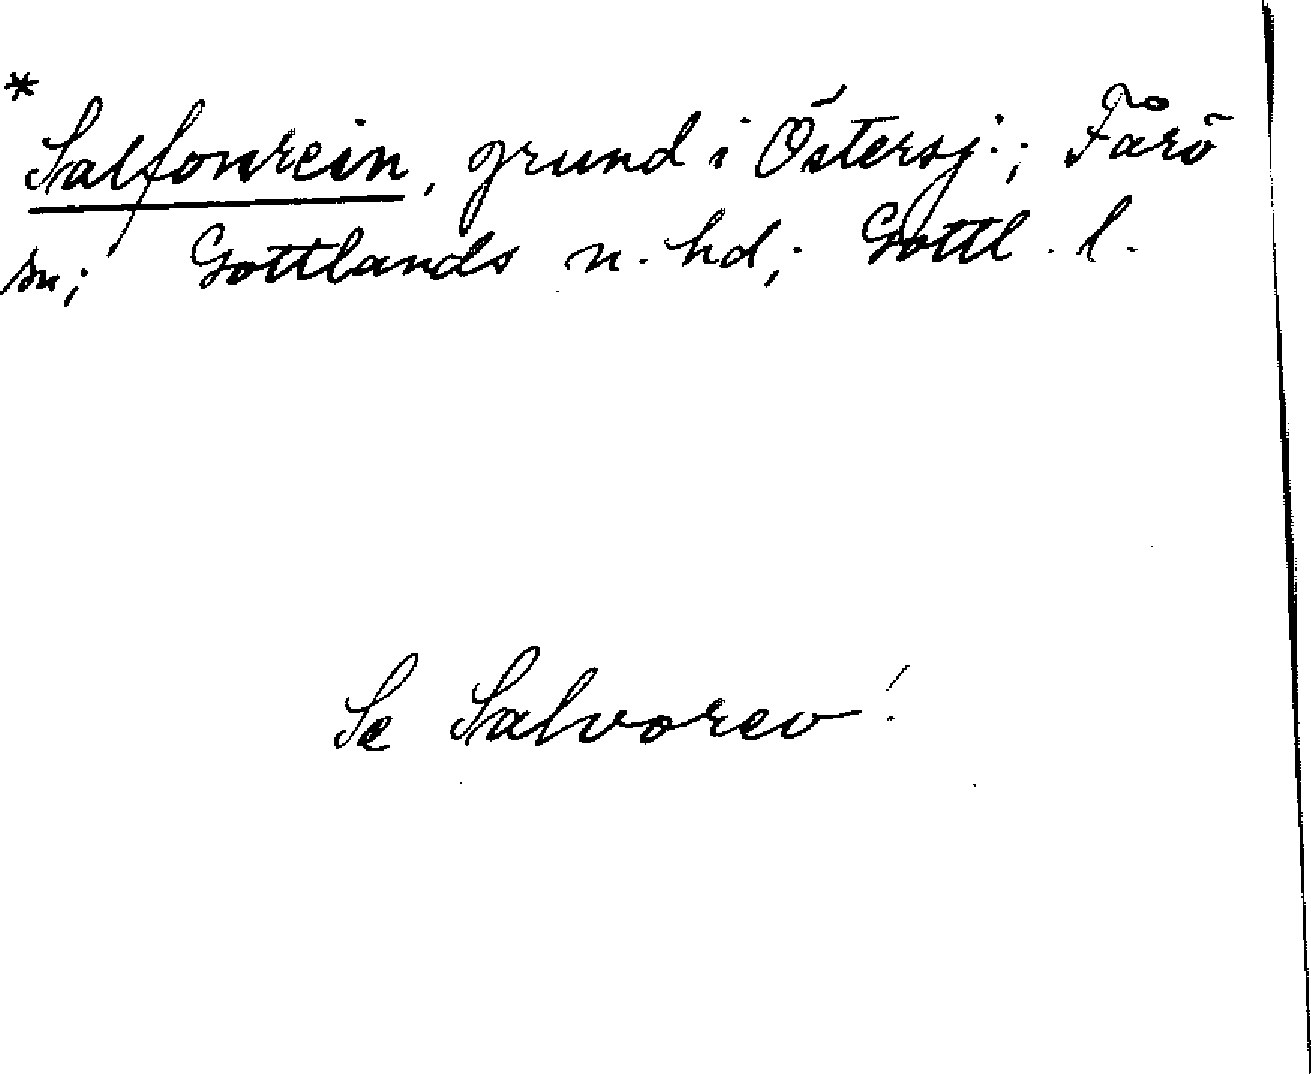 *
Salfonrein, grund i Östersj.; Fårö
sn; Gottlands n. hd; Gottl. l.
Se Salvorev!